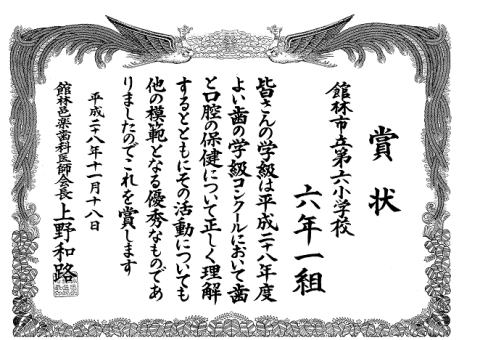 賞状
館林市立第六小学校
六年一組
皆さんの学級は平成二十八年度
よい歯の学級コンクールにおいて歯
と口腔の保健について正しく理解
するとともにその活動についても
他の模範となる優秀なものであ
りましたのでこれを賞します
平成二十八年十一月十八日
館林邑楽歯科医師会長 上野和路